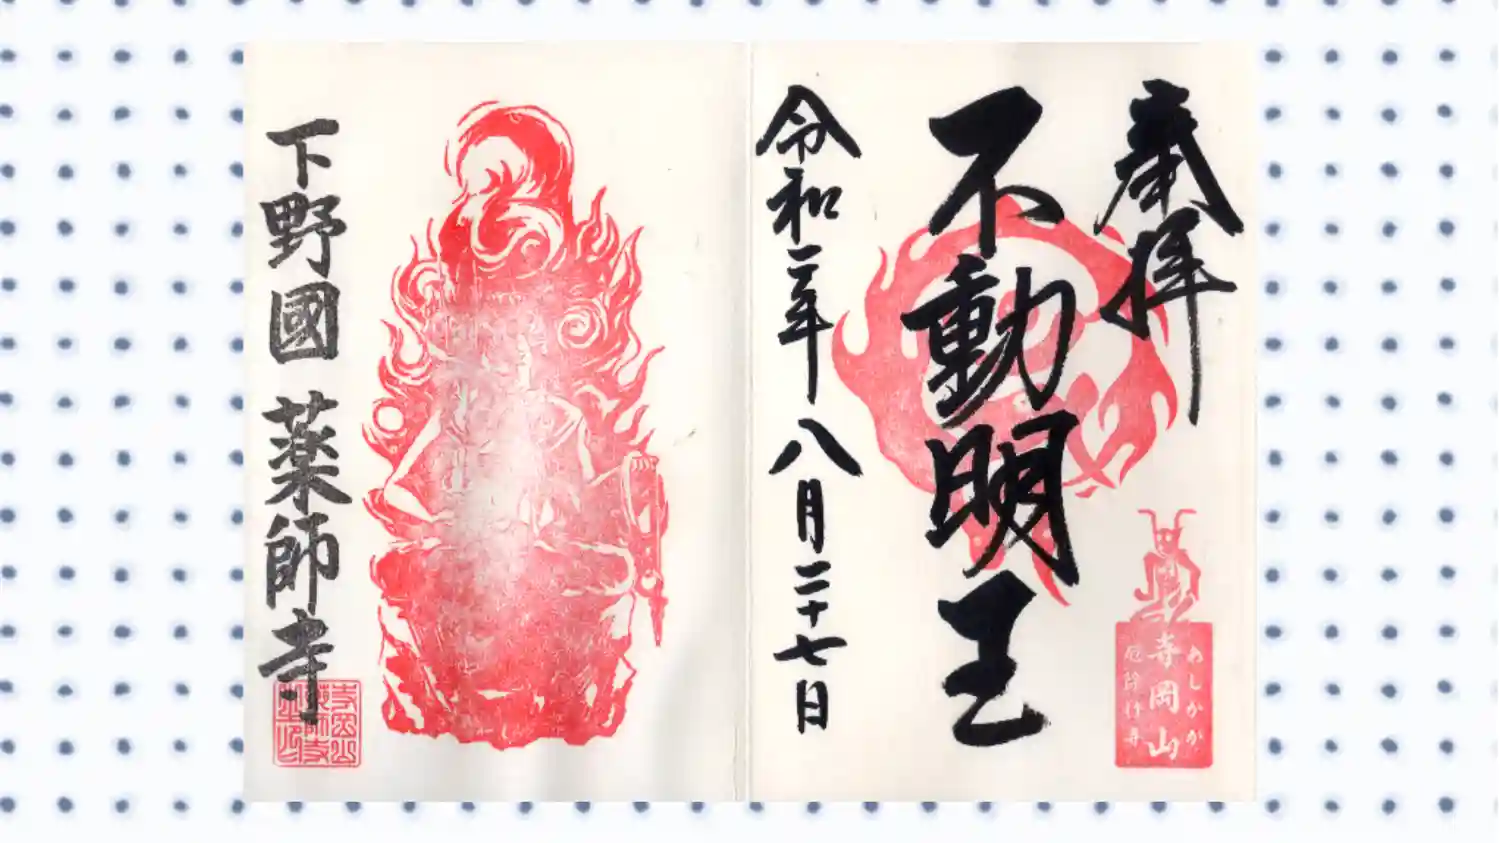 奉拝
不動明王
令和二年八月二十七日
あしかが
寺岡山
厄除け
下野國 薬師寺
寺岡山
薬師寺
之印